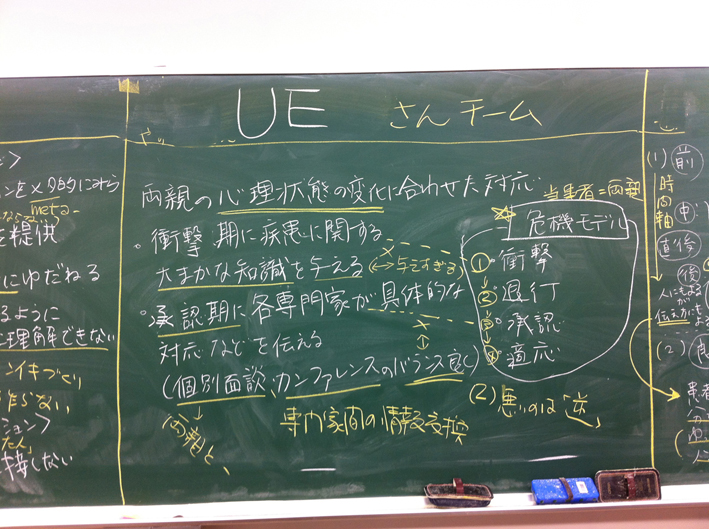 UE さんチーム
両親の心理状態の変化に合わせた対応
当事者=両親
・衝撃期に疾患に関する
大まかな知識を与える
↔与えすぎる
・承認期に各専門家が具体的な
対応などを伝える
(個別面談、カンファレンスのバランス良く)
危機モデル
①・衝撃
②・退行
③・承認
④・適応
専門家間の情報交換
(2) 悪いのは逆
meta-
を提供
にゆだねる
るように
理解できない
ション>
接しない
(1) 前
時間軸
中
直後
後
人にもよるが
伝え方にもよる
(2) 良
患者